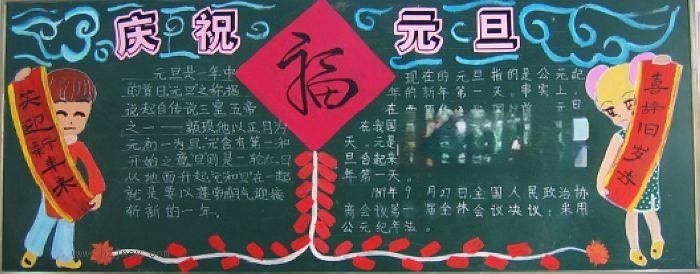 庆祝
福
元旦
笑迎新年来
元旦是一年中
的首日,元旦之称据
说起自传说三皇五帝
之一——颛顼他以正月为
元而一为旦,元含有第一和
开始之意,旦则是一轮太日
从地面升起元和旦在一起
就是要以蓬勃朝气迎接
崭新的一年。
现在的元旦指的是公元起
年的新年第一天。事实上,
元旦
在我国
天。元是
旦合起来
年第一天。
1949年9月27日,全国人民政治协
商会议第一届全体会议决议:采用
公元纪年法。
喜辞旧岁去